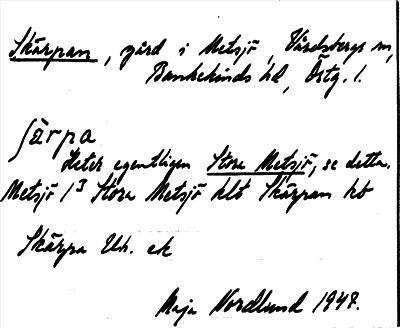 Skärpan, gård i Metsjö, Vårdsbergs sn,
Bankekinds hd, Östg. l.
ʃärpa
Heter egentligen Stora Metsjö, se detta.
Metsjö 1³ Stora Metsjö klt Skärpan kb
Skärpa Uh. ek
Maja Nordlund 1948.